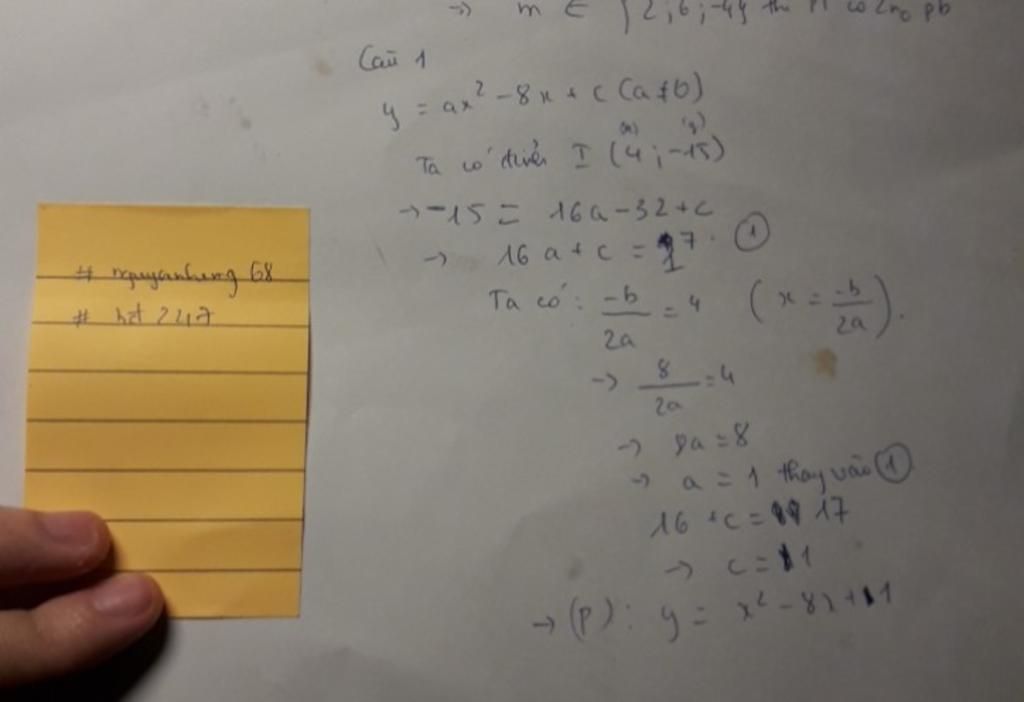 → m ∈ {2; 6; -4} thì PT có 2 no pb
Câu 1
y = ax² - 8x + c (a ≠ 0)
(x) (y)
Ta có đỉnh I (4; -15)
→ -15 = 16a - 32 + c
→ 16a + c = 17. ①
Ta có: -b/2a = 4 (x = -b/2a).
→ 8/2a = 4
→ 8a = 8
→ a = 1 thay vào ①
16 + c = 17
→ c = 1
→ (P): y = x² - 8x + 1
# nguyanhung 68
# hst 247